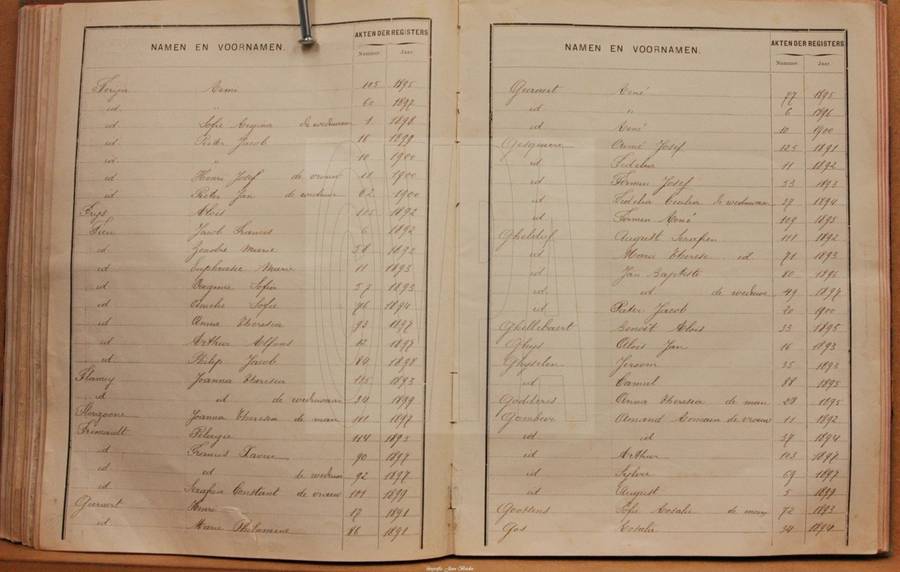 NAMEN EN VOORNAMEN. AKTEN DER REGISTERS
Nummer Jaar
105 1895
id 60 1897
id Sofie Regina de weduwaar 1 1898
id Pieter Jacob 16 1899
id " 10 1900
id Henri Josef de vrouw 11 1900
id Pieter Jan de weduwe 62 1900
Frijs Aloïs 105 1892
Jacob Francis 6 1892
id Zenobie Marie 1892
id Euphrasie Marie 11 1893
id Virginie Sofie 57 1893
id Amelie Sofie 76 1894
id Anna Theresia 93 1897
id Arthur Alfons 12 1897
id Philip Jacob 80 1898
Flamey Joanna Theresia 115 1893
id id de weduwaar 34 1899
Joanna Theresia de man 101 1897
Fremault Pelagie 114 1893
id Francies Xavier 90 1897
id id de weduwe 92 1897
id Serafien Constant de vrouw 101 1899
Geeraert Henri 17 1891
id Marie Philomene 86 1891
NAMEN EN VOORNAMEN. AKTEN DER REGISTERS
Nummer Jaar
Geeraert René 77 1895
id " 6 1896
id René 10 1900
Gesquiere Aimé Josef 125 1891
id Fidelia 11 1892
id Firmin Josef 53 1893
id Fidelia Cecilia de weduwaar 37 1894
id Firmin René 109 1895
Gheldof August Serafien 111 1892
id Marie Therese id 71 1893
id Jan Baptiste 80 1896
id id de weduwe 49 1897
id Pieter Jacob 20 1900
Ghellebaert Benoit Aloïs 33 1895
Ghys Aloïs Jan 16 1893
Ghyselen Jerome 35 1893
id Camiel 88 1895
Godderis Anna Theresia de man 28 1895
Gombeir Amand Romain de vrouw 11 1892
id id 37 1894
id Arthur 103 1897
id Sylvie 69 1897
id August 5 1899
Goossens Sofie Rosalie de man 72 1893
Gos Rosalie 34 1894